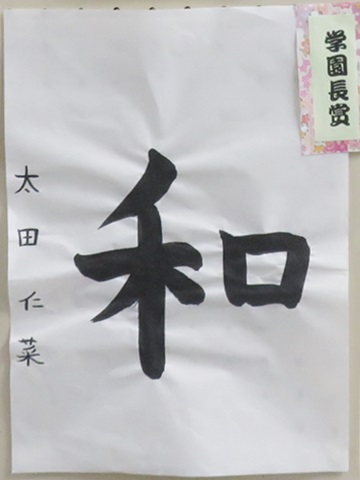 学園長賞
和
太田仁菜